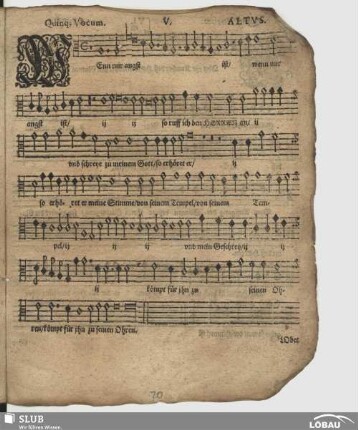 Quinq; Vocum. V. ALTVS.
WEnn mir angst ist/ wenn mir
angst ist/ ij ij so ruff ich den HERREN an/ ij
vnd schreye zu meinem Gott/ so erhöret er/ ij
so erhö- ret er meine Stimme/ von seinem Tempel/ von seinem Tem-
pel/ ij ij ij vnd mein Geschrey/ ij ij
ij kömpt für jhn zu seinen Oh-
ren/ kömpt für jhn zu seinen Ohren.
20
SLUB
Wir führen Wissen.
LÖBAU